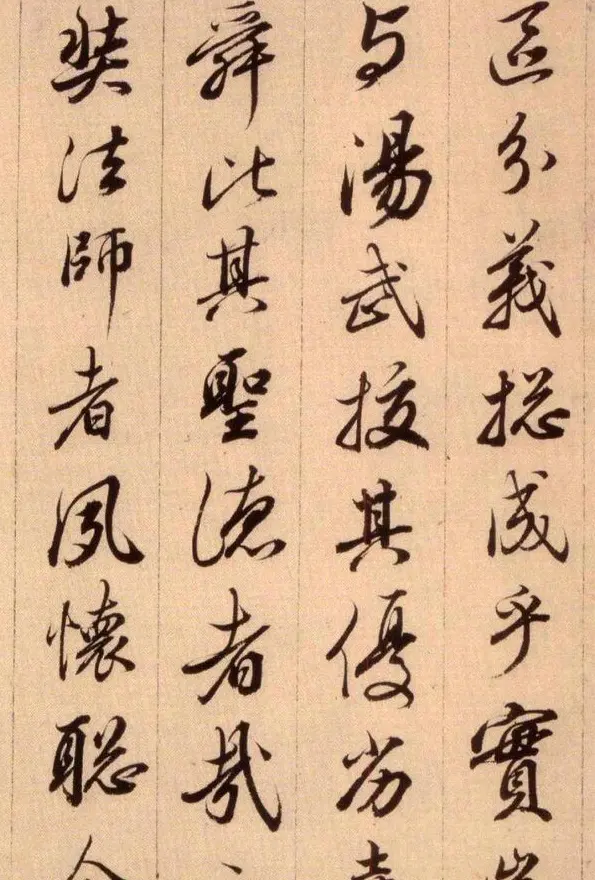 區分義揔成乎實
与湯武挍其優劣
舜比其聖德者哉
奘法師者夙懷聡